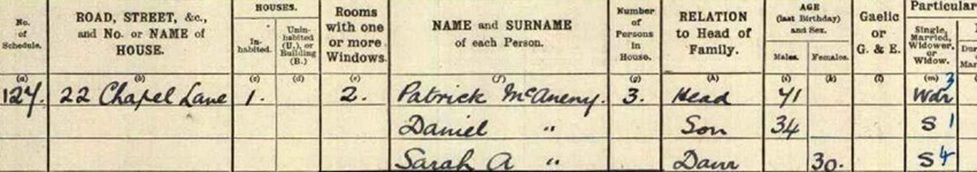 No. of Schedule. ROAD, STREET, &c., and No. or NAME of HOUSE. HOUSES. Inhabited. Uninhabited (U.), or Building (B.) Rooms with one or more Windows. NAME and SURNAME of each Person. Number of Persons in House. RELATION to Head of Family. AGE (last Birthday) and Sex. Males. Females. Gaelic or G. & E. Particular Single, Married, Widower, or Widow.
(a) (b) (c) (d) (e) (f) (g) (h) (i) (k) (l) (m)
127. 22 Chapel Lane 1. 2. Patrick McAneny. 3. Head 71 Wdr 3
Daniel " Son 34 S 1
Sarah A " Daur 30. S 4